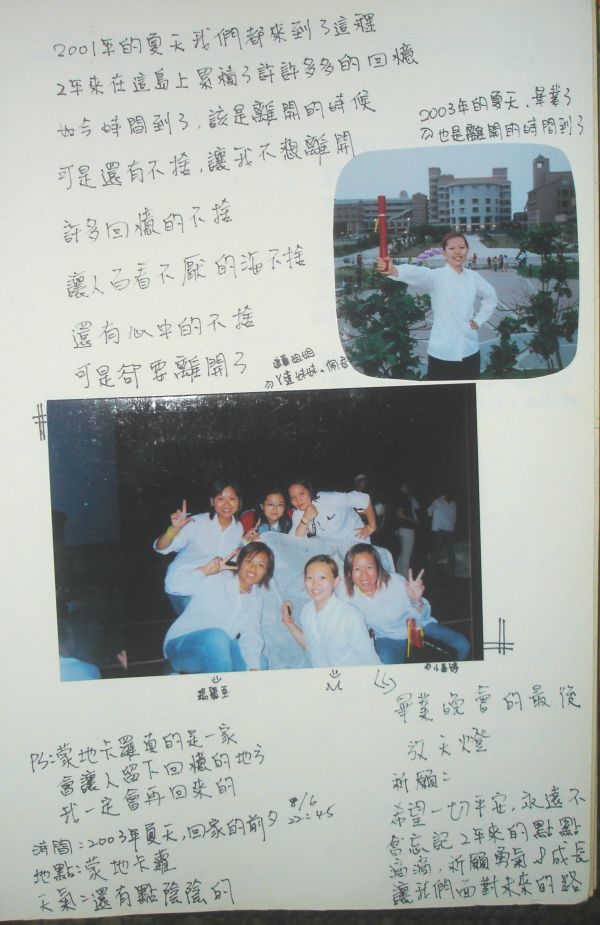 2001年的夏天我們都來到了這裡
2年來在這島上累積了許許多多的回憶
如今時間到了,該是離開的時候
可是還有不捨,讓我不想離開
許多回憶的不捨
讓人百看不厭的海不捨
還有心中的不捨
可是卻要離開了
2003年的夏天,畢業了
ㄉ也是離開的時間到了
姐姐
妹妹、
畢業晚會的最後
放天燈
祈願:
希望一切平安,永遠不
會忘記2年來的點點
滴滴,祈願勇氣&成長
讓我們面對未來的路
PS:蒙地卡羅真的是一家
會讓人留下回憶的地方
我一定會再回來的
8/6
22:45
時間:2003年夏天,回家的前夕
地點:蒙地卡蘿
天氣:還有點陰陰的